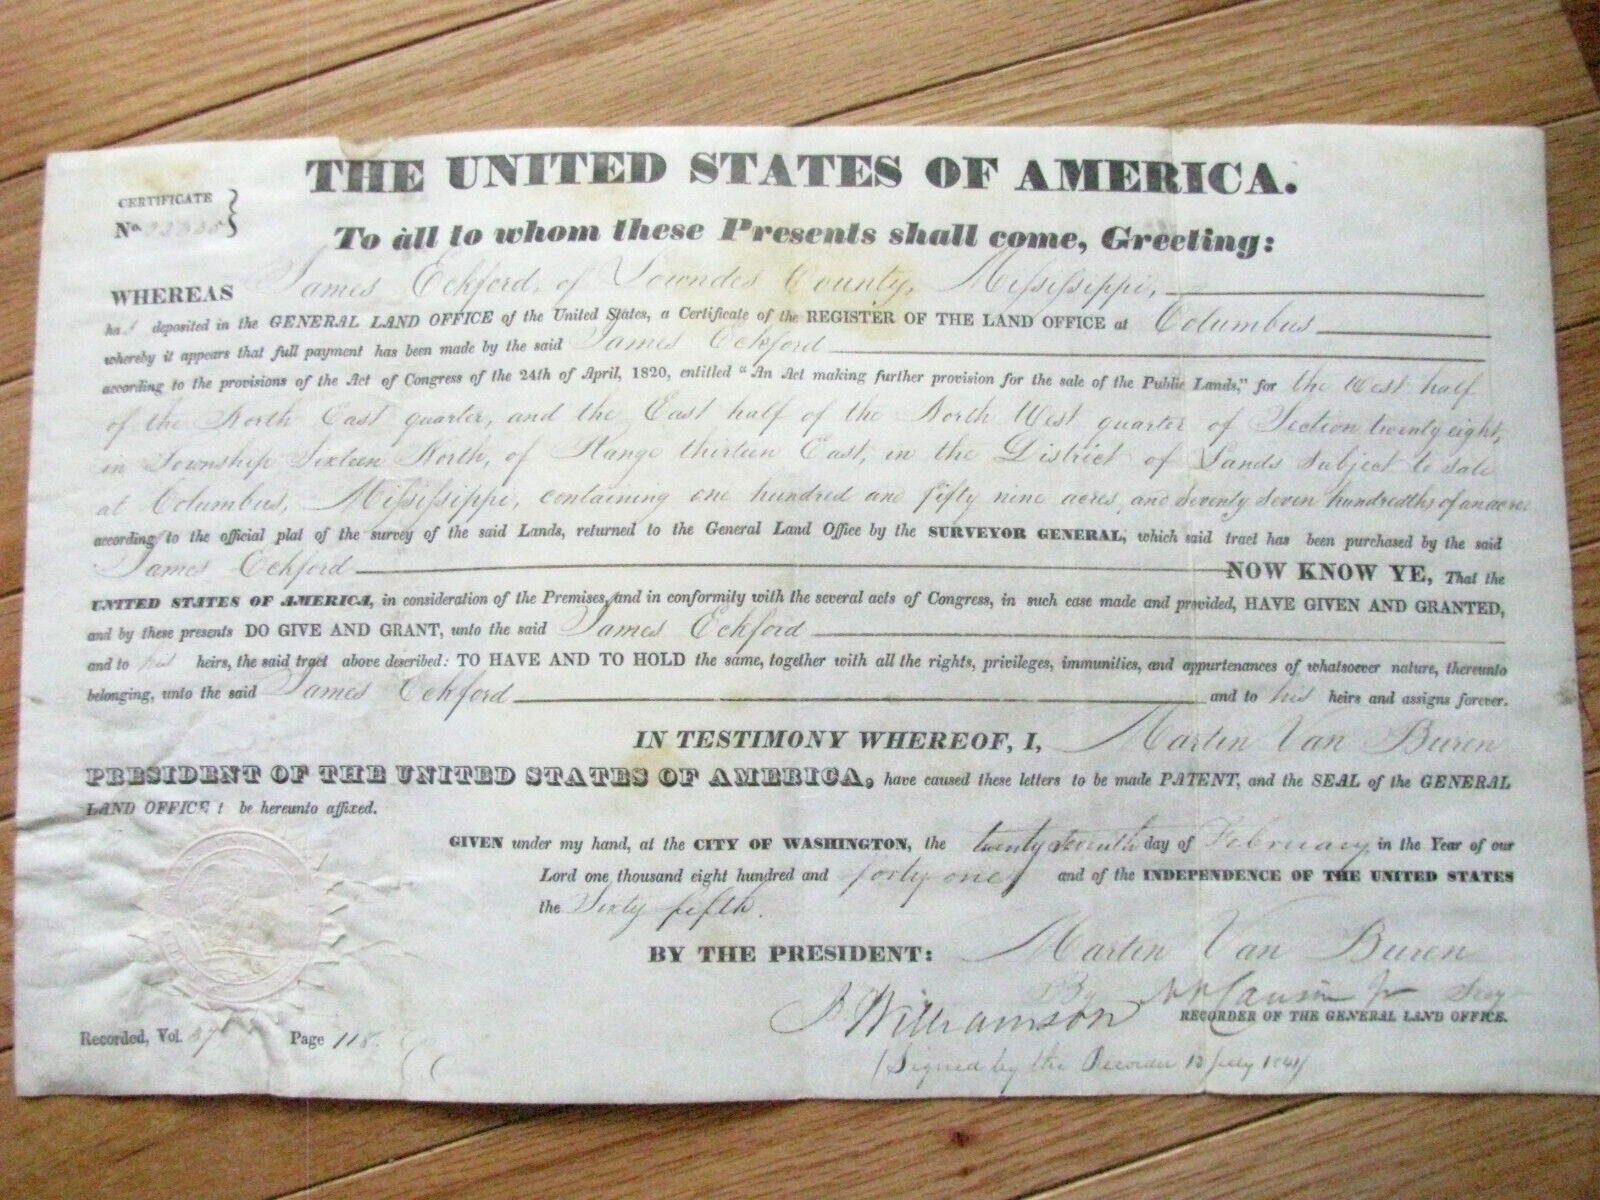 THE UNITED STATES OF AMERICA.
CERTIFICATE
No.
To all to whom these Presents shall come, Greeting:
WHEREAS James Eckford, of Lowndes County, Mississippi,
has deposited in the GENERAL LAND OFFICE of the United States, a Certificate of the REGISTER OF THE LAND OFFICE at Columbus
whereby it appears that full payment has been made by the said James Eckford
according to the provisions of the Act of Congress of the 24th of April, 1820, entitled "An Act making further provision for the sale of the Public Lands," for the West half
of the North East quarter, and the East half of the North West quarter of Section twenty eight,
in Township Sixteen North, of Range thirteen East, in the District of Lands Subject to sale
at Columbus, Mississippi, containing one hundred and fifty nine acres, and Seventy Seven hundredths of an acre
according to the official plat of the survey of the said Lands, returned to the General Land Office by the SURVEYOR GENERAL, which said tract has been purchased by the said
James Eckford NOW KNOW YE, That the
UNITED STATES OF AMERICA, in consideration of the Premises, and in conformity with the several acts of Congress, in such case made and provided, HAVE GIVEN AND GRANTED,
and by these presents DO GIVE AND GRANT, unto the said James Eckford
and to his heirs, the said tract above described: TO HAVE AND TO HOLD the same, together with all the rights, privileges, immunities, and appurtenances of whatsoever nature, thereunto
belonging, unto the said James Eckford and to his heirs and assigns forever.
IN TESTIMONY WHEREOF, I, Martin Van Buren
PRESIDENT OF THE UNITED STATES OF AMERICA, have caused these letters to be made PATENT, and the SEAL of the GENERAL
LAND OFFICE t be hereunto affixed.
GIVEN under my hand, at the CITY OF WASHINGTON, the twenty seventh day of February in the Year of our
Lord one thousand eight hundred and forty one and of the INDEPENDENCE OF THE UNITED STATES
the Sixty fifth.
BY THE PRESIDENT: Martin Van Buren
By Secy
Williamson RECORDER OF THE GENERAL LAND OFFICE.
Recorded, Vol. 37 Page 118.
(Signed by the Recorder July 1841)